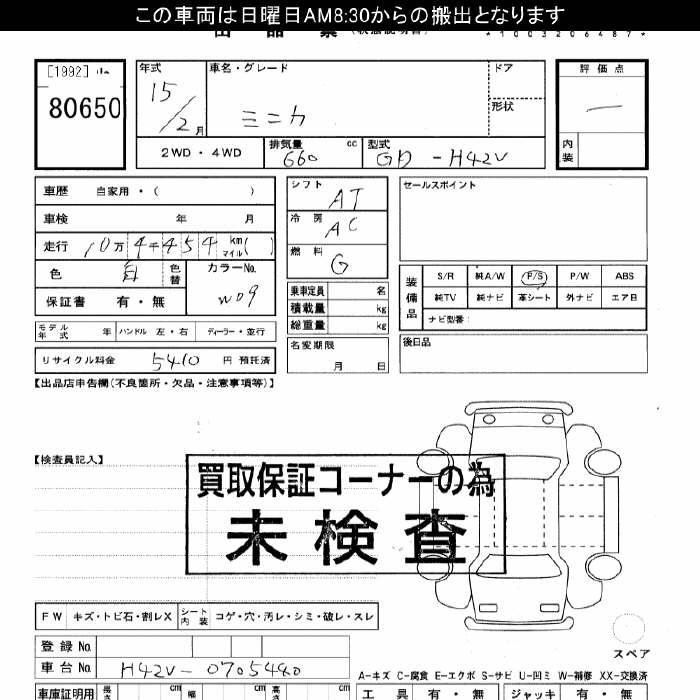 この車両は日曜日AM8:30からの搬出となります
出品票(状態説明書) *1003206487*
[1992] 80650
年式 15/2月 車名・グレード ミニカ ドア 形状
評価点 ― 内装
2WD・4WD 排気量 660 cc 型式 GD-H42V
車歴 自家用・( )
車検 年 月
走行 10万4千454 km マイル( )
色 白 色替 カラーNo. W09
保証書 有・無
モデル年式 年 ハンドル 左・右 ディーラー・並行
リサイクル料金 5410 円 預託済
シフト AT
冷房 AC
燃料 G
乗車定員 名
積載量 kg
総重量 kg
名変期限 月 日
セールスポイント
装備品 S/R 純A/W P/S P/W ABS
純TV 純ナビ 革シート 外ナビ エアB
ナビ型番:
後日品
【出品店申告欄(不良箇所・欠品・注意事項等)】
【検査員記入】
買取保証コーナーの為
未検査
FW キズ・トビ石・割レX シート内装 コゲ・穴・汚レ・シミ・破レ・スレ
スペア
登録No.
車台No. H42V-0705440
A-キズ C-腐食 E-エクボ S-サビ U-凹ミ W-補修 XX-交換済
車庫証明用 長さ cm 幅 cm 高さ cm
工具 有・無 ジャッキ 有・無